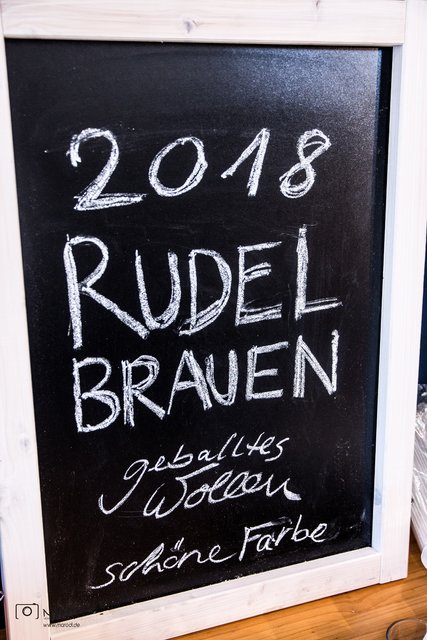 2018
RUDEL
BRAUEN
geballtes
Wollen
schöne Farbe
www.marodi.de